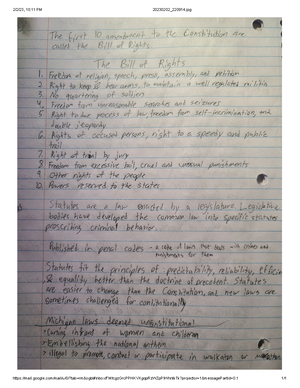 2/2/23, 10:11 PM
20230202_220914.jpg
The first 10 amendment to the Constitution are
called the Bill of Rights
The Bill of Rights
1. Freedom of religion, speech, press, assembly, and petition
2. Right to keep & bear arms to maintain a well regulated militia
3. No quartering of soldiers
4. Freedom from unreasonable searches and seizures
5. Right to due process of law, freedom from self-incrimination, and
double jeopardy
6. Rights of accused persons, right to a speedy and public
trail
7. Right of trial by jury
8. Freedom from excessive bail, cruel and unusual punishments
9. Other rights of the people
10. Powers reserved to the states
Statutes are a law enacted by a legislature. Legislative
bodies have developed the common law into specific statutes
proscribing criminal behavior.
Published in penal codes - a code of laws that deals with crimes and
punishments for them
Statutes fit the principles of predictability, reliability,
& equality better than the doctrine of precedent. Statutes
are easier to change than the Constitution, and new laws are
sometimes challenged for constitutionality
Michigan laws deemed unconstitutional
Cursing infront of women and children
Embellishing the national anthem
illegal to promote, conduct or participate in walkathon or
1/1